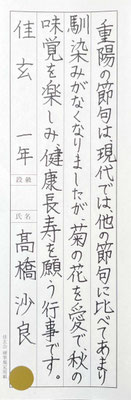 重陽の節句は現代では他節句に比べ、あまり
馴染みがなくなりましたが、菊の花を愛で、秋の
味覚を楽しみ健康長寿を願う行事です。
佳玄 一年 段級 氏名 髙橋沙良